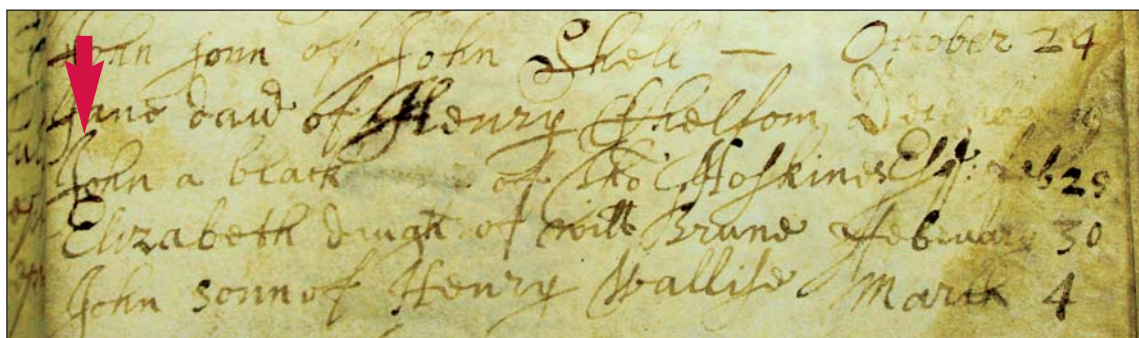 John sonn of John Shell — October 24
Jane daud of Henry Shelsom
John a black of Tho Hoskines Esq: feb 28
Elizabeth daugh of will Brune ffebruary 30
John sonn of Henry Wallise March 4